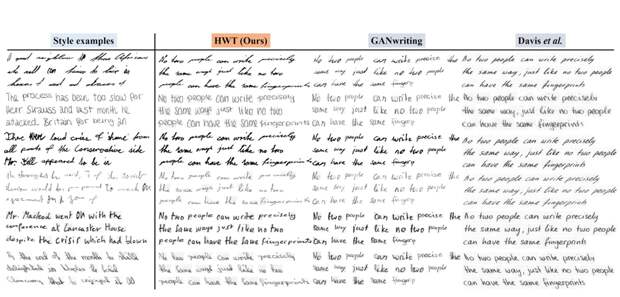 Style examples
A good neighbour to these Africans
who all can to live in
of and
The process has been too slow for
Dear Strauss and last month he
attacked Britain for being an
There were loud cries of 'shame' from
all parts of the Conservative side
Mr. Gill appeared to be in
Mr. Macleod went on with the
conference at Lancaster House
despite the crisis which had blown
By the end of the month
HWT (Ours)
No two people can write precisely
the same ways just like no two
people can have the same fingerprints
No two people can write precisely
the same ways just like no two
people can have the same fingerprints
No two people can write precisely
the same ways just like no two
people can have the same fingerprints
No two people can write precisely
the same ways just like no two
people can have the same fingerprints
No two people can write precisely
the same ways just like no two
people can have the same fingerprints
No two people can write precisely
the same ways just like no two
people can have the same fingerprints
GANwriting
No two people can write precise the
same way just like no two people
can have the same fingerp
No two people can write precise the
same way just like no two people
can have the same fingerp
No two people can write precise the
same way just like no two people
can have the same fingerp
No two people can write precise the
same way just like no two people
can have the same fingerp
No two people can write precise the
same way just like no two people
can have the same fingerp
No two people can write precise the
same way just like no two people
can have the same fingerp
Davis et al.
No two people can write precisely
the same way, just like no two people
can have the same fingerprints
No two people can write precisely
the same way, just like no two people
can have the same fingerprints
No two people can write precisely
the same way, just like no two people
can have the same fingerprints
No two people can write precisely
the same way, just like no two people
can have the same fingerprints
No two people can write precisely
the same way, just like no two people
can have the same fingerprints
No two people can write precisely
the same way, just like no two people
can have the same fingerprints